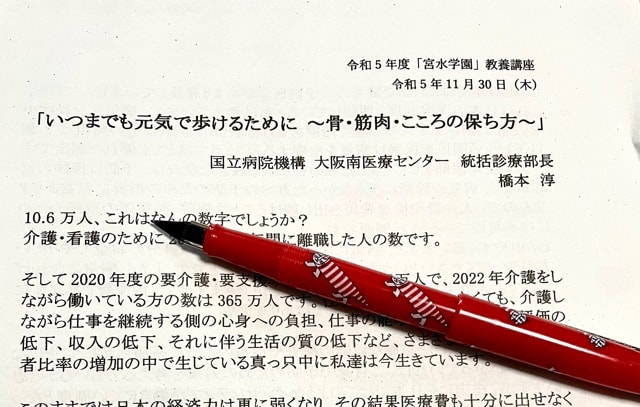 令和5年度「宮水学園」教養講座
令和5年11月30日（木）
「いつまでも元気で歩けるために ～骨・筋肉・こころの保ち方～」
国立病院機構 大阪南医療センター 統括診療部長
橋本 淳
10.6万人、これはなんの数字でしょうか？
介護・看護のために2 年間に離職した人の数です。
そして2020年度の要介護・要支援 万人で、2022年介護をし
ながら働いている方の数は365万人です。 くても、介護し
ながら仕事を継続する側の心身への負担、仕事の 評価の
低下、収入の低下、それに伴う生活の質の低下など、さまざ
者比率の増加の中で生じている真っ只中に私達は今生きています。
このままでは日本の経済力は更に弱くなり、その結果医療費も十分に出せなく